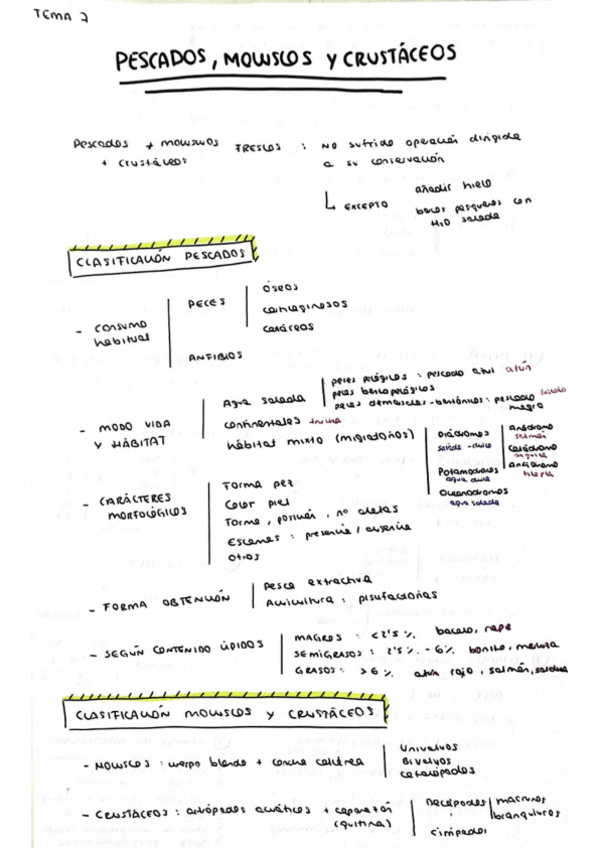 TEMA 7
PESCADOS, MOLUSCOS Y CRUSTÁCEOS
Pescados + moluscos + crustáceos FRESCOS : NO sufrido operación dirigida a su conservación
EXCEPTO
añadir hielo
barcos pesqueros con H2O salada
CLASIFICACIÓN PESCADOS
- CONSUMO habitual
PECES
óseos
cartilaginosos
cetáceos
ANFIBIOS
- MODO VIDA Y HÁBITAT
Agua salada
peces pelágicos : pescado azul atún
peces bentopelágicos
peces demersales - bentónicos : pescado magro
continentales trucha
hábitat mixto (migratorios)
Diádromos
salada - dulce
Anádromo
salmón
Catádromo
anguila
Anfídromo
Potamodromos
agua dulce
Oceanodromos
agua salada
- CARÁCTERES MORFOLÓGICOS
Forma pez
Color piel
Forma, posición, nº aletas
Escamas : presencia / ausencia
Otros
- FORMA OBTENCIÓN
Pesca extractiva
Acuicultura : piscifactorías
- SEGÚN CONTENIDO LÍPIDOS
MAGROS : <2'5 % bacalao, rape
SEMIGRASOS : 2'5% - 6% bonito, merluza
GRASOS : >6 % atún rojo, salmón, sardina
CLASIFICACIÓN MOLUSCOS Y CRUSTÁCEOS
- MOLUSCOS : cuerpo blando + concha calcárea
Univalvos
Bivalvos
Cefalópodos
- CRUSTÁCEOS : artrópodos acuáticos + caparazón (quitina)
Decápodos
macruros
branquiuros
cirrípedos